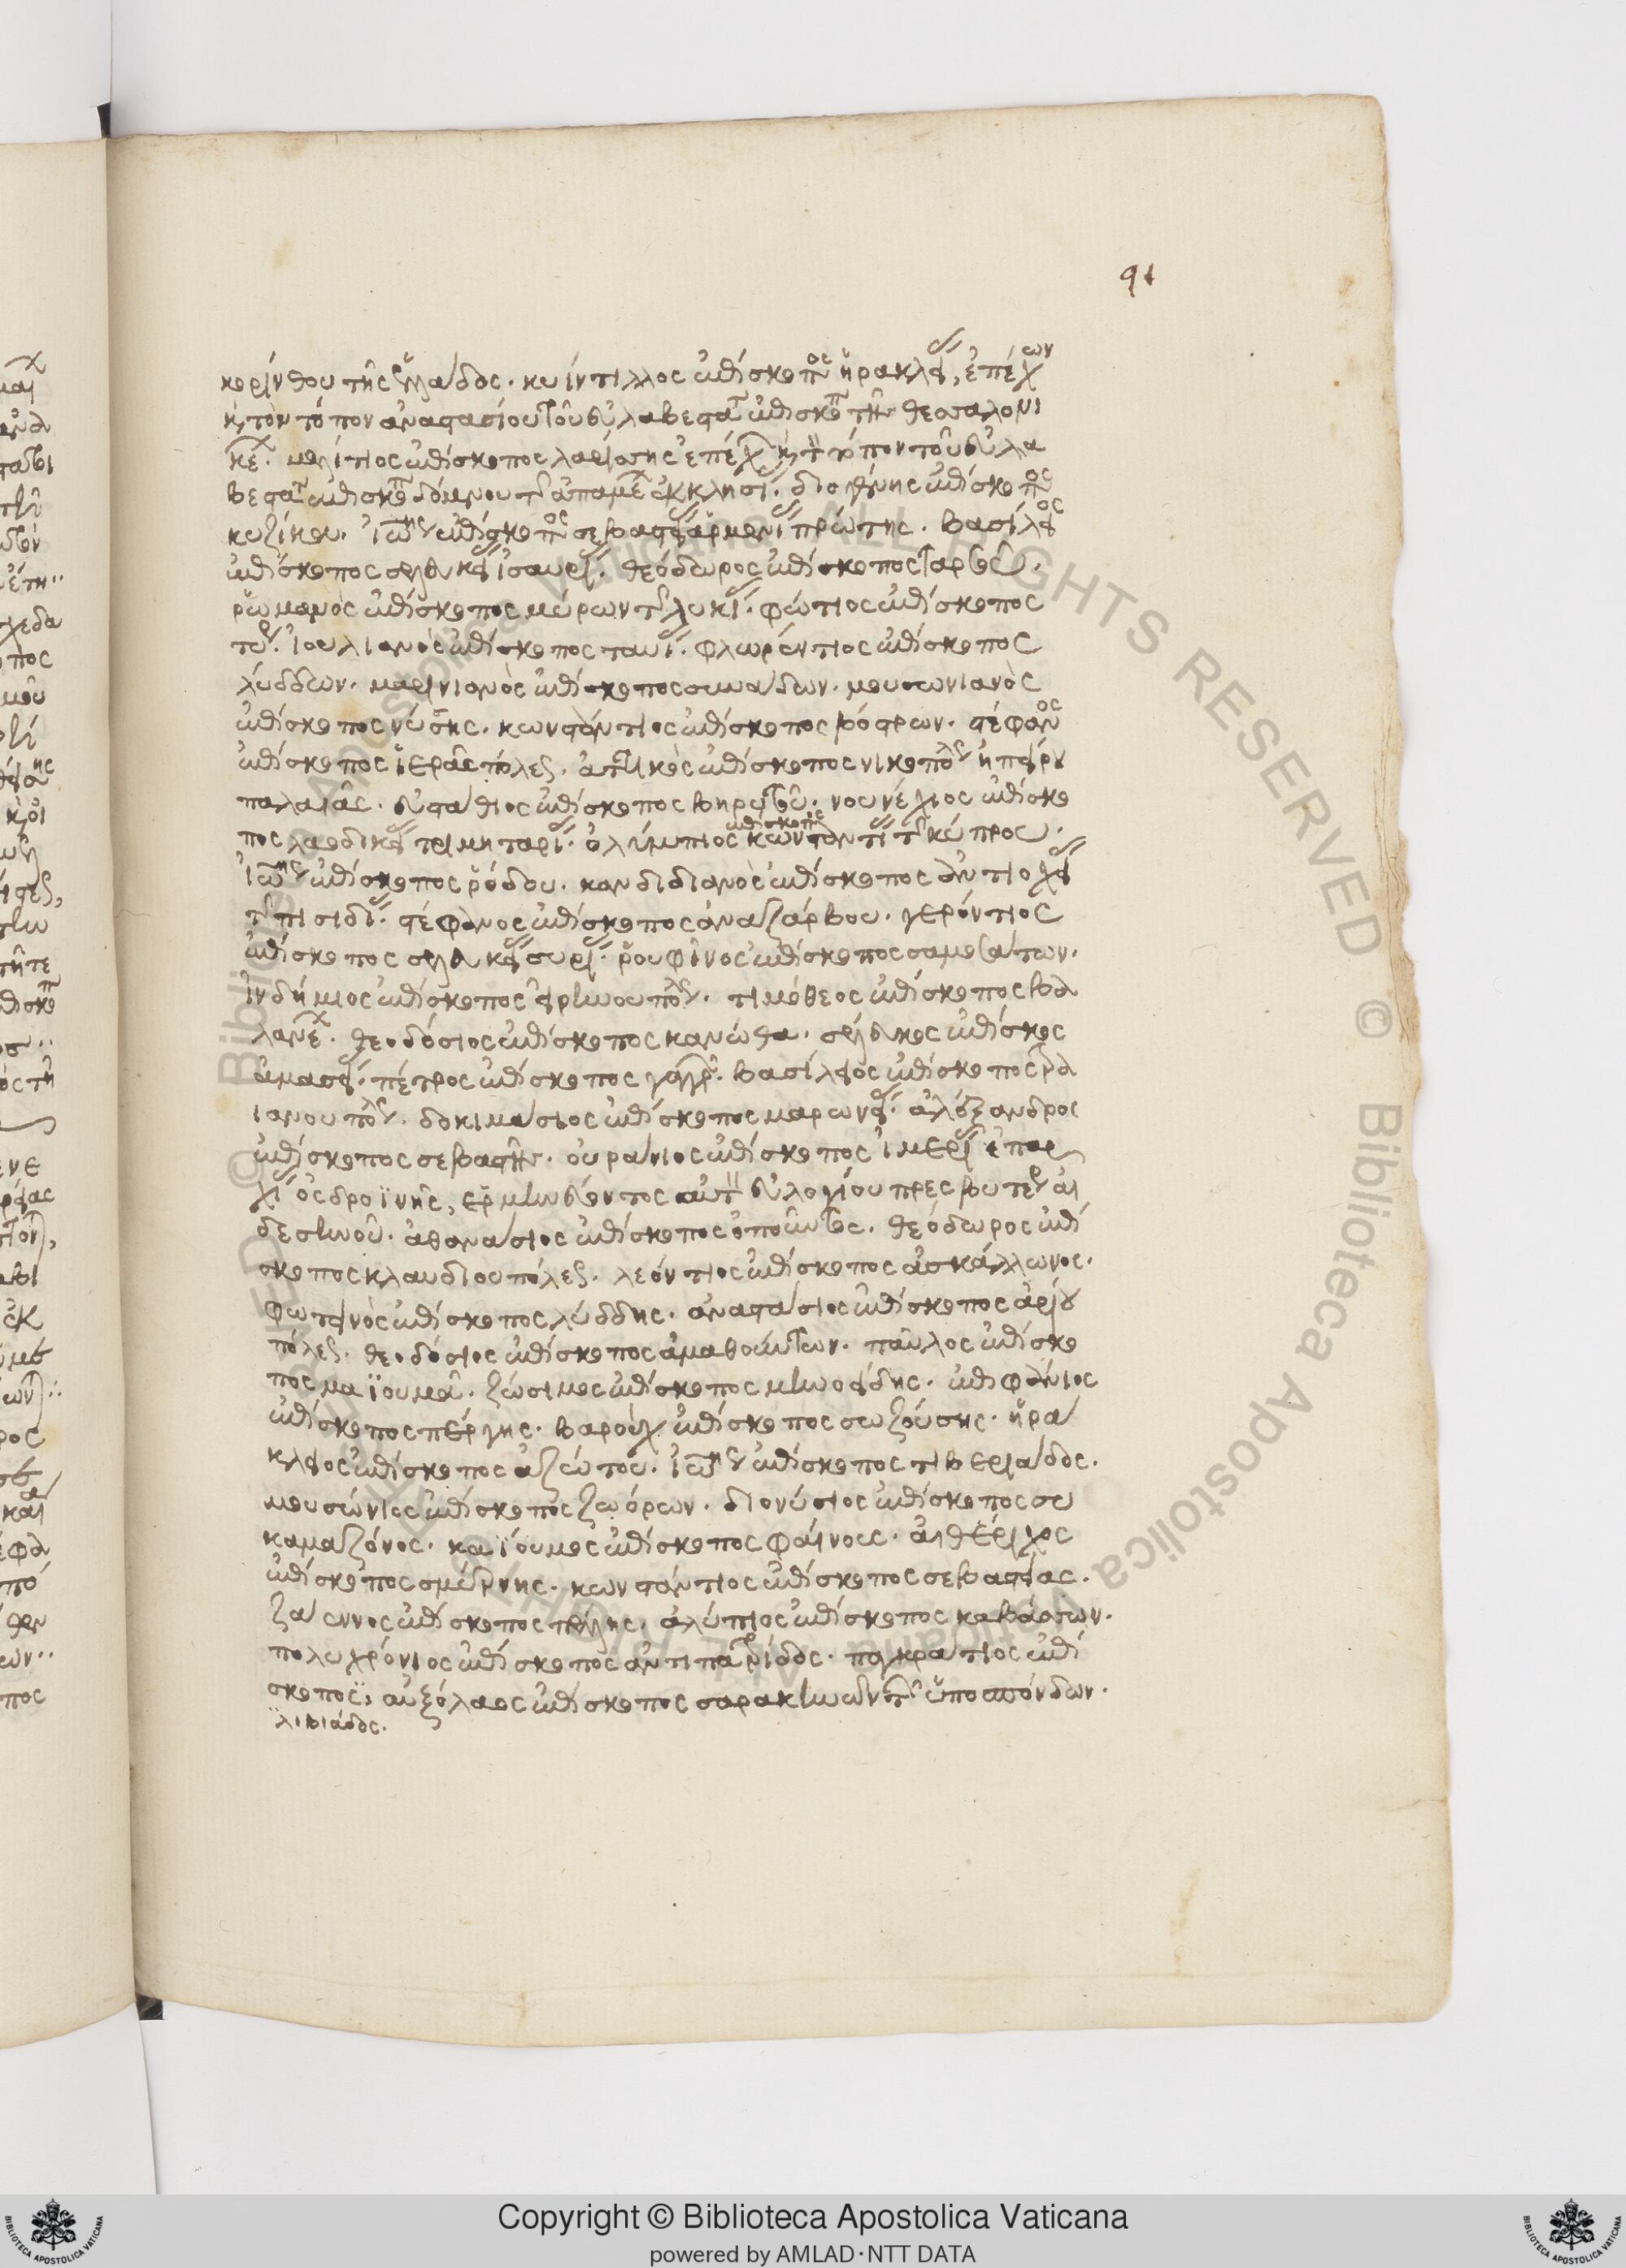 91
κορίνθου τῆς ἑλλάδος. κυίντιλλος ἐπίσκοπος ἡρακλείας, ἐπέχων
κ τὸν τόπον ἀναστασίου τοῦ εὐλαβεστάτ ἐπισκόπ τῆς θεσσαλονι
κέ. μελίτιος ἐπίσκοπος λαρίσσης ἐπέχ κ τ τόπον τοῦ εὐλα
βεστάτ ἐπισκόπ δόμνου τ ἀπαμέ ἐκκλησί. διογένης ἐπίσκοπος
κυζίκου. ἰωης ἐπίσκοπος σεβαστείας ἀρμενί πρώτης. βασίλειος
ἐπίσκοπος σελευκείας ἰσαυρί. θεόδωρος ἐπίσκοπος ταρσοῦ.
ῥωμανὸς ἐπίσκοπος μύρων τ λυκί. φώτιος ἐπίσκοπος
τύρ. ἰουλιανὸς ἐπίσκοπος ταυΐ. φλωρέντιος ἐπίσκοπος
λύδδων. μαρινιανὸς ἐπίσκοπος συνάδων. μουσωνιανὸς
ἐπίσκοπος νύσσης. κωνστάντιος ἐπίσκοπος βόστρων. στέφανος
ἐπίσκοπος ἱερᾶς πόλεως. ἀττικὸς ἐπίσκοπος νικοπόλ ἠπείρου
παλαιᾶς. εὐστάθιος ἐπίσκοπος βηρυτοῦ. νουνέχιος ἐπίσκο
πος λαοδικείας τριμηταρί. ὀλύμπιος ἐπίσκοπος κωνσταντί τ κύπρου.
ἰωης ἐπίσκοπος ῥόδου. κανδιδιανὸς ἐπίσκοπος ἀντιοχείας
τ πισιδί. στέφανος ἐπίσκοπος ἀναζάρβου. γερόντιος
ἐπίσκοπος σελευκείας συρί. ῥουφῖνος ἐπίσκοπος σαμοσάτων.
ἰνδήμιος ἐπίσκοπος εἰρηνουπόλ. τιμόθεος ἐπίσκοπος βα
λανέ. θεοδόσιος ἐπίσκοπος κανώθα. σέλευκος ἐπίσκος
ἀμασεί. πέτρος ἐπίσκοπος γάγγρ. βασίλειος ἐπίσκοπος τρα
ιανουπόλ. δοκιμάσιος ἐπίσκοπος μαρωνεί. ἀλέξανδρος
ἐπίσκοπος σεβαστῆς. οὐράνιος ἐπίσκοπος ἰμερί ἐπαρ
χί ὀσδροϊνῆς, ἑρμηνεύοντος αὐτ εὐλογίου πρεσβυτέρ ἀι
δεσηνοῦ. ἀθανάσιος ἐπίσκοπος ὀποῦντος. θεόδωρος ἐπί
σκοπος κλαυδιουπόλεως. λεόντιος ἐπίσκοπος ἀσκάλλωνος.
φωτεινὸς ἐπίσκοπος λύδδης. ἀναστάσιος ἐπίσκοπος ἀρείου
πόλεως. θεοδόσιος ἐπίσκοπος ἀμαθούντων. παῦλος ἐπίσκο
πος μαϊουμᾶ. ζώσιμος ἐπίσκοπος μηνοείδης. ἐπιφάνιος
ἐπίσκοπος πέργης. βαροὺχ ἐπίσκοπος σωζούσης. ἡρά
κλειος ἐπίσκοπος ἀζώτου. ἰωης ἐπίσκοπος τιβεριάδος.
μουσώνιος ἐπίσκοπος ζωόρων. διονύσιος ἐπίσκοπος συ
καμαζόνος. καϊούμος ἐπίσκοπος φαίνους. αἰθέριχος
ἐπίσκοπος σμύρνης. κωνστάντιος ἐπίσκοπος σεβαστείας.
ζάεννος ἐπίσκοπος πέλλης. ἀλύπιος ἐπίσκοπος καβάσσων.
πολυχρόνιος ἐπίσκοπος ἀντιπατρίδος. παγκράτιος ἐπί
σκοπος, αὐξόλαος ἐπίσκοπος σαρακηνῶν τ ὑποσπόνδων.
λιβιάδος.
Copyright © Biblioteca Apostolica Vaticana
powered by AMLAD·NTT DATA